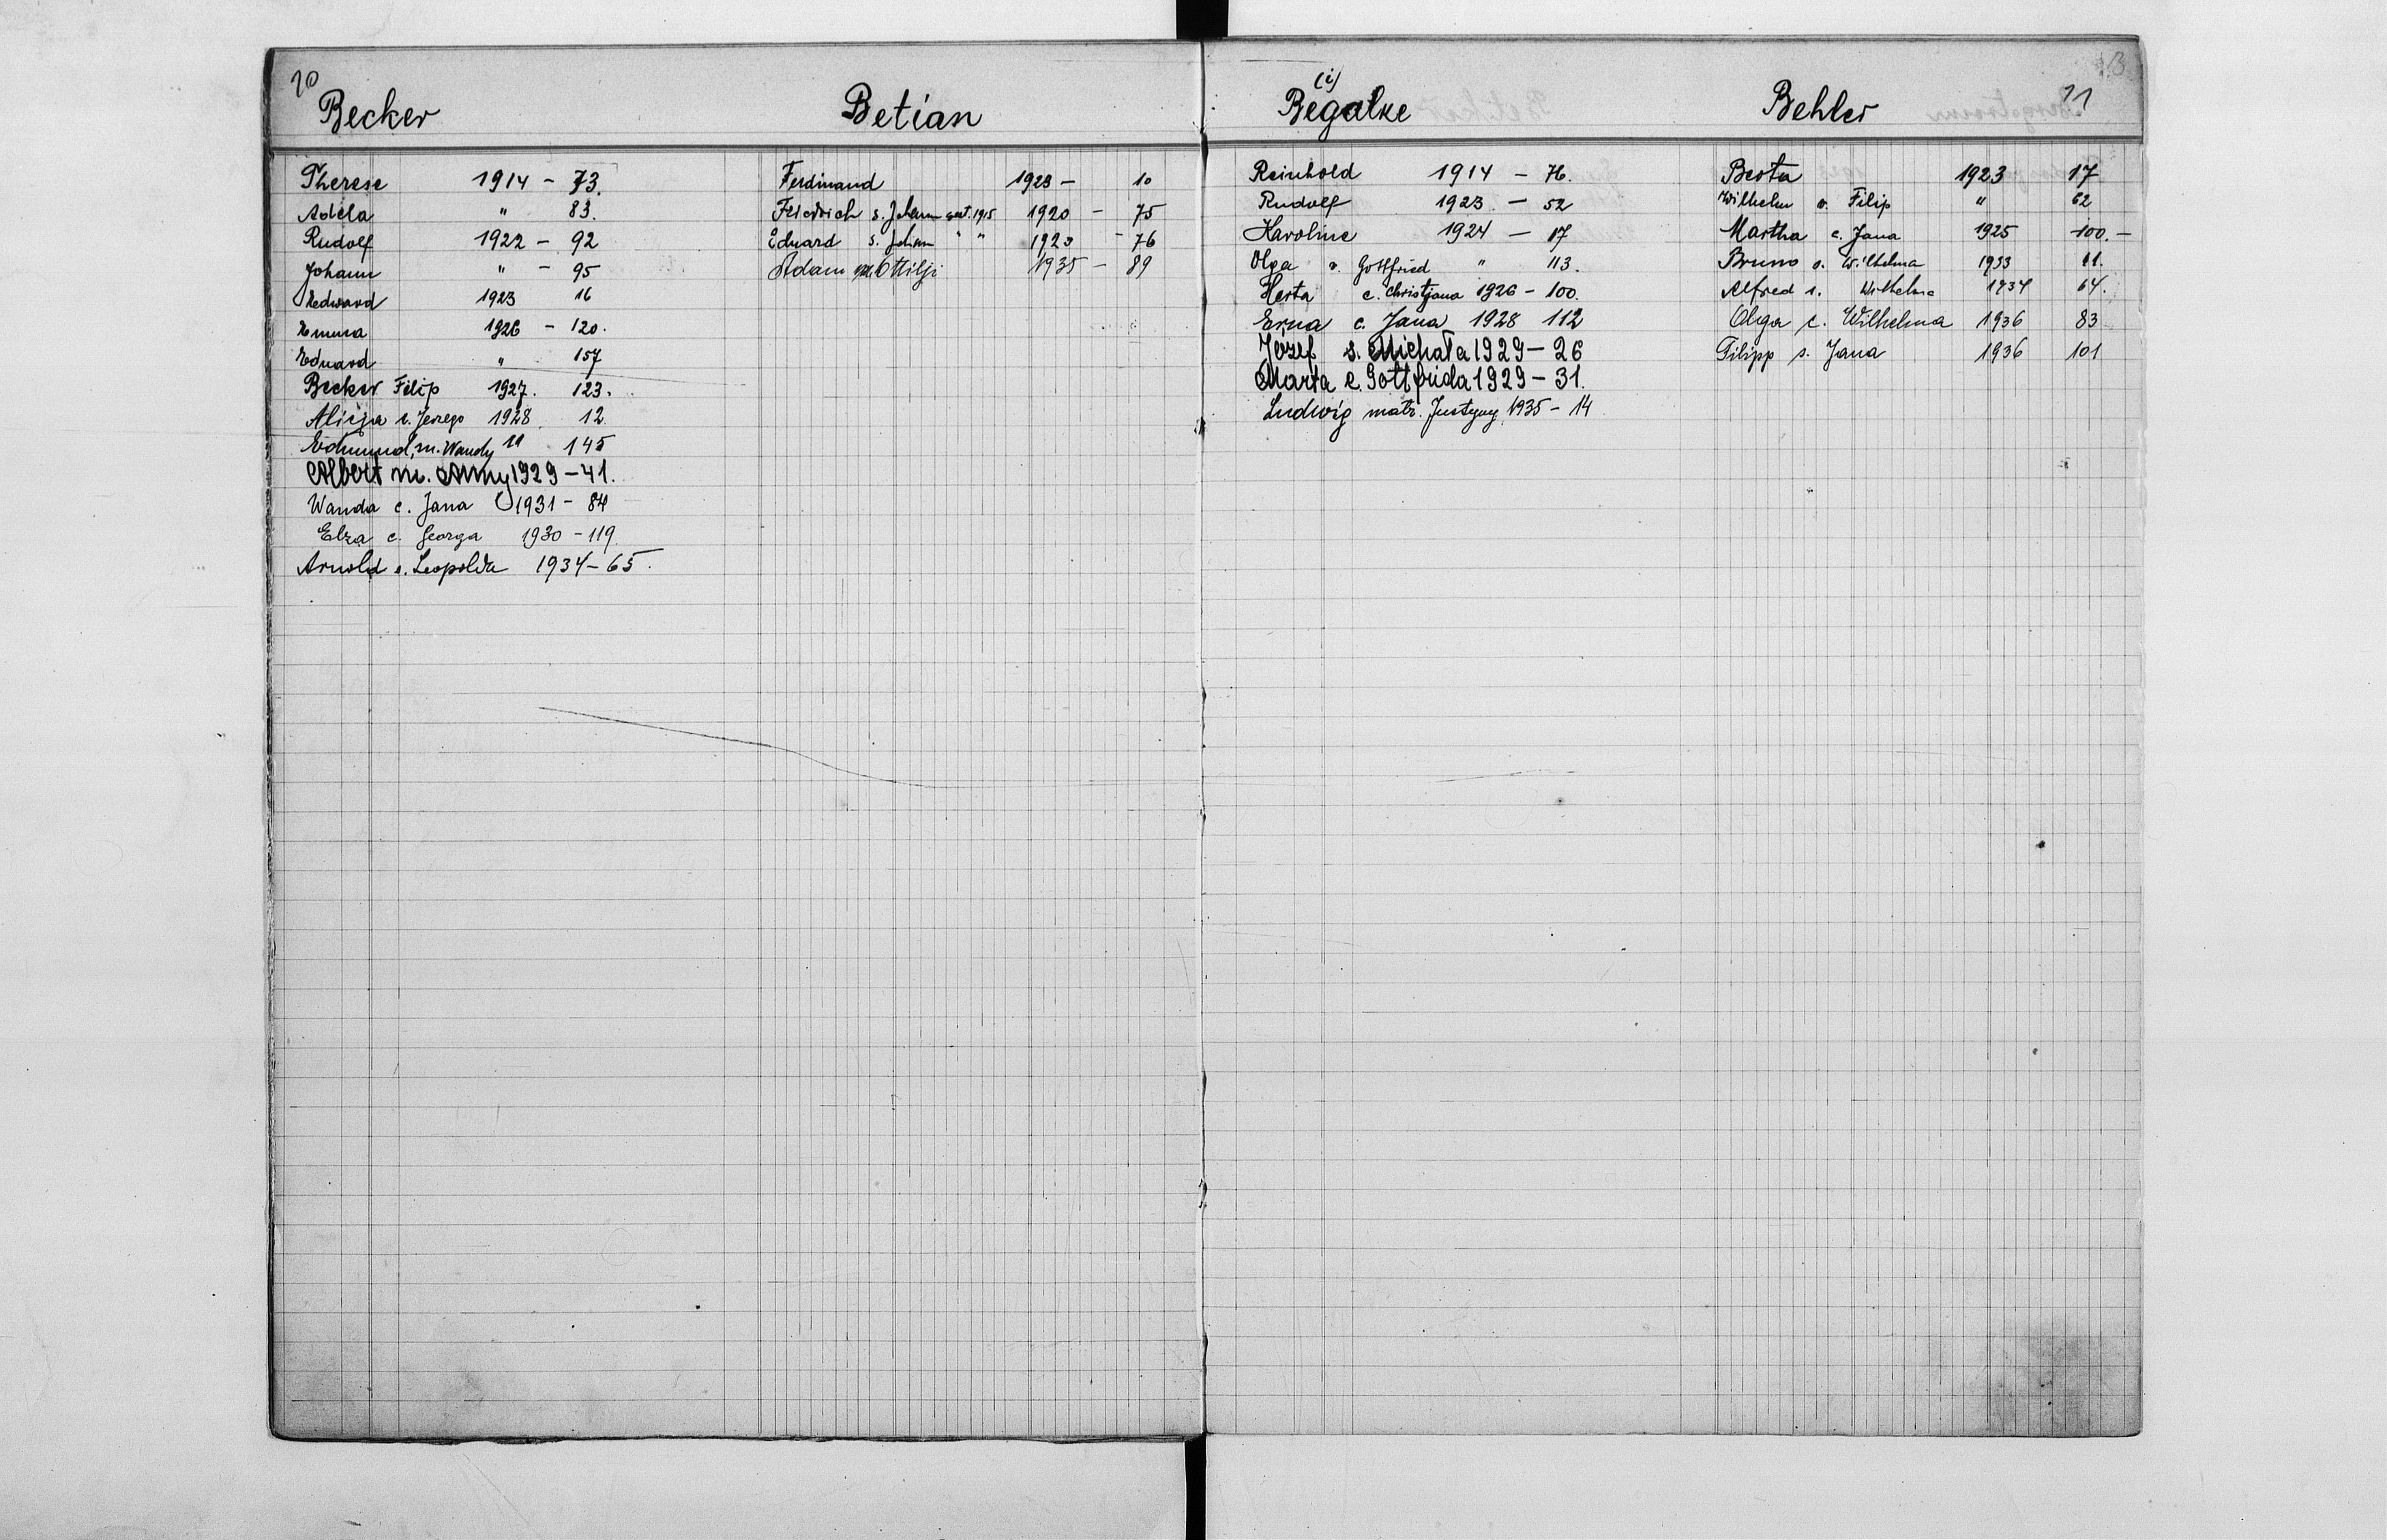 10
Becker
Therese 1914 - 73.
Adela " 83.
Rudolf 1922 - 92
Johann " - 95
Edward 1923 16
Emma 1926 - 120.
Eduard " 157
Becker Filip 1927. 123.
Alicja c. Jerzego 1928 12
Edmund, m. Wandy " 145
Albert m. Anny 1929 - 41.
Wanda c. Jana 1931 - 84
Elza c. Georga 1930 - 119
Arnold s. Leopolda 1934 - 65.
Betian
Ferdinand 1923 - 10
Friedrich s. Johann 1915 1920 - 75
Eduard s. Johan " " 1923 - 76
Adam m. Ottilji 1935 - 89
(i)
Begalke
Reinhold 1914 - 76.
Rudolf 1923. - 52
Karoline 1924 - 17
Olga v. Gottfried " 113.
Herta c. Christjana 1926 - 100.
Erna c. Jana 1928 112
Józef s. Michała 1929 - 26
Marta c. Gottfrida 1929 - 31.
Ludwig matr. Justyny 1935 - 14
11
Behler
Berta 1923 17
Wilhelm v. Filip " 62
Martha c. Jana 1925 100. -
Bruno s. Wilhelma 1933 11.
Alfred s. Wilhelma 1934 64.
Olga c. Wilhelma 1936 83
Filipp s. Jana 1936 101